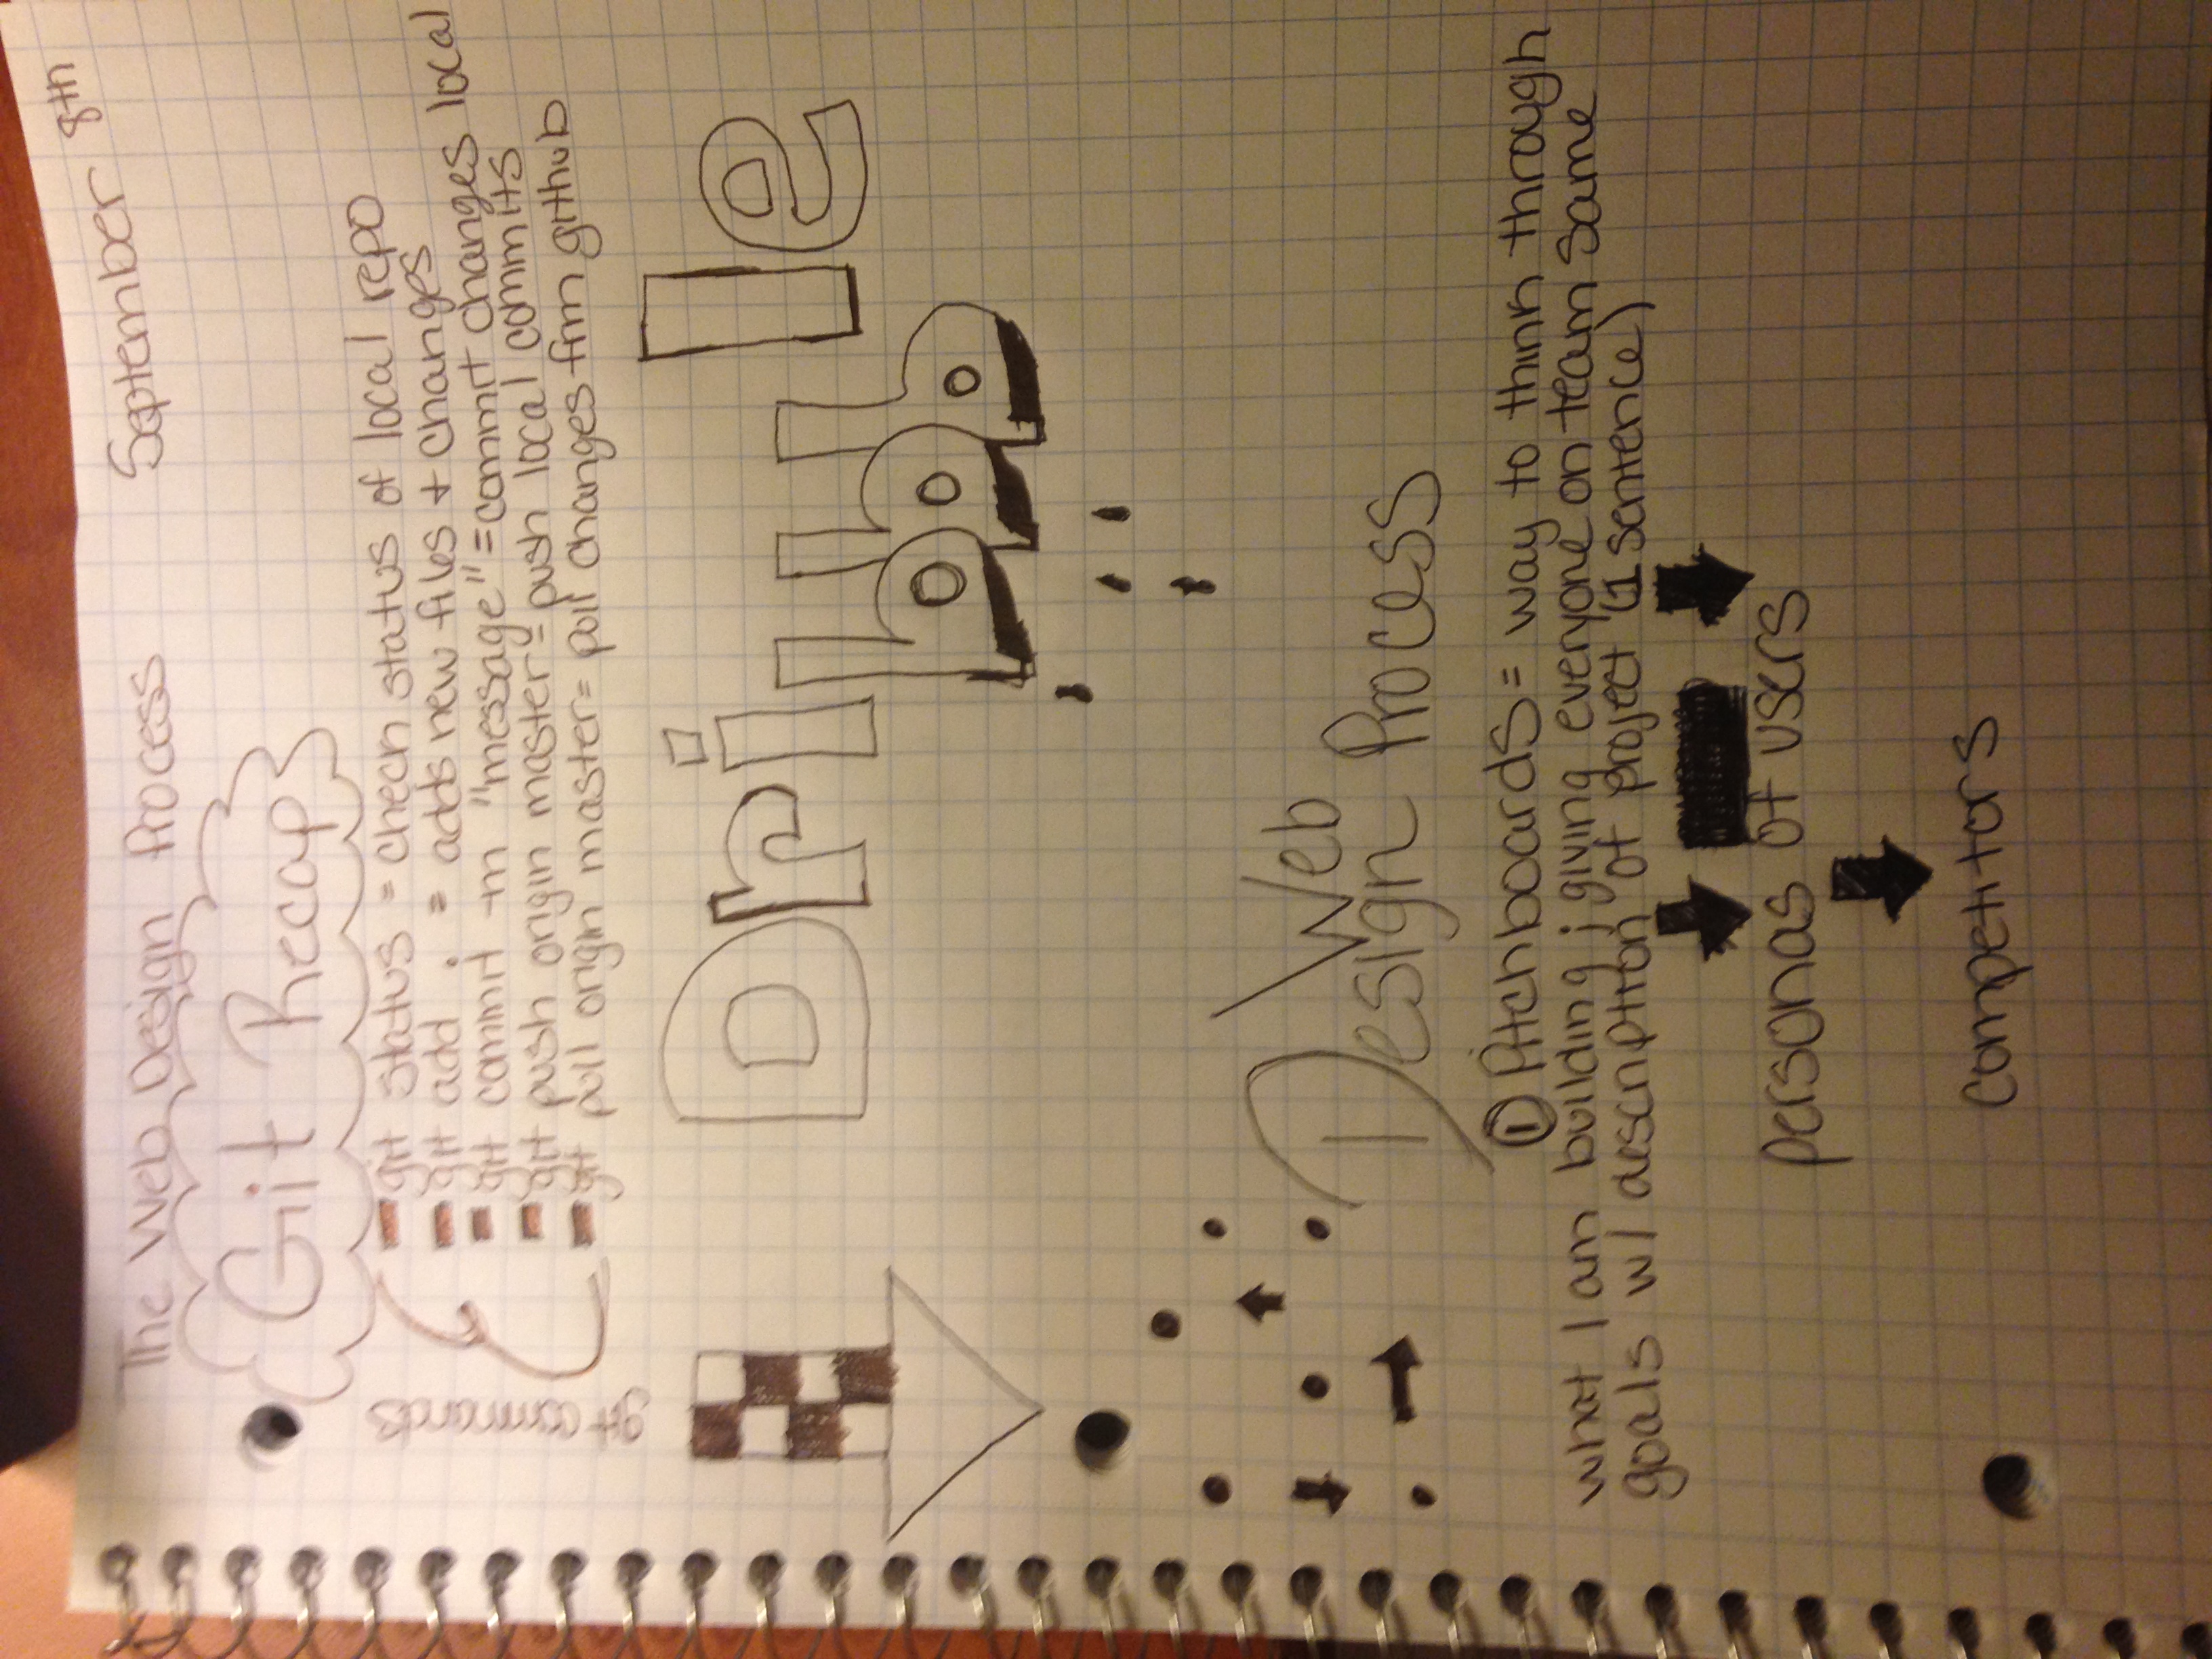 The Web Design Process September 8th
Git Recap
git commands
git status = check status of local repo
git add . = adds new files + changes
git commit -m "message" = commit changes local
git push origin master = push local commits
git pull origin master = pull changes frm github
Dribbble
Web
Design Process
① Pitchboards = way to think through
what I am building ; giving everyone on team same
goals w/ description of project (1 sentence)
personas of users
competitors